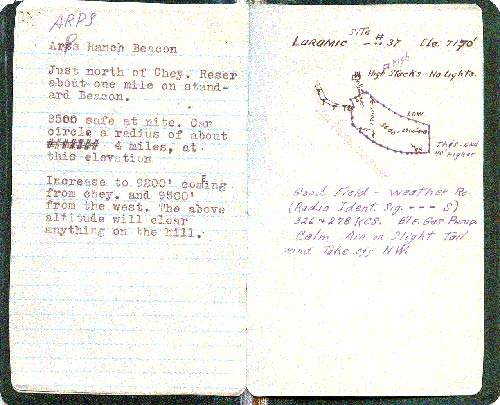 ARPS
Arps Ranch Beacon
Just north of Chey. Reser
about one mile on stand-
ard Beacon.
8500 safe at nite. Can
circle a radius of about
####### 4 miles, at
this elevation
Increase to 9200' coming
from chey. and 9500'
from the west. The above
altitude will clear
anything on the hill.
Site
Laramie - # 37 Ele. 7170'
High
High Stacks - No Lights.
LOW
This end
40' higher
Good Field - Weather Rp.
(Radio Ident. Sig. - - - S)
326 & 278 KCS. Ele. Gas Pump
Calm Air or Slight Tail
wind Take off NW.